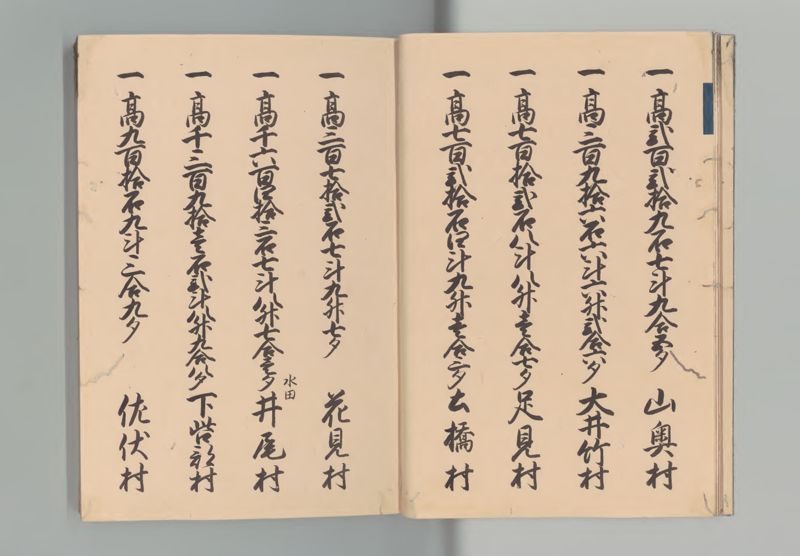 一 高弐百弐拾九石七斗九合五夕 山奥村
一 高三百九拾六石六斗六升弐合六夕 大井竹村
一 高七百拾弐石八斗八升壱合七夕 足見村
一 高七百弐拾石四斗九升壱合三夕 土橋村
一 高三百七拾弐石七斗九升七夕 花見村
一 高千六百四拾三石七斗八升七合壱夕 井尾村
水田
一 高千三百九拾壱石弐斗八升九合八夕 下呰部村
一 高九百拾石九斗三合九夕 佐伏村